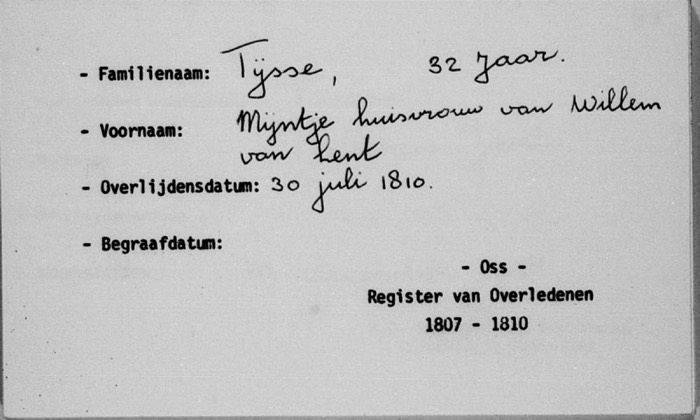 - Familienaam: Tÿsse, 32 jaar.
- Voornaam: Mijntje huisvrouw van Willem
van Lent
- Overlijdensdatum: 30 juli 1810.
- Begraafdatum:
- Oss -
Register van Overledenen
1807 - 1810